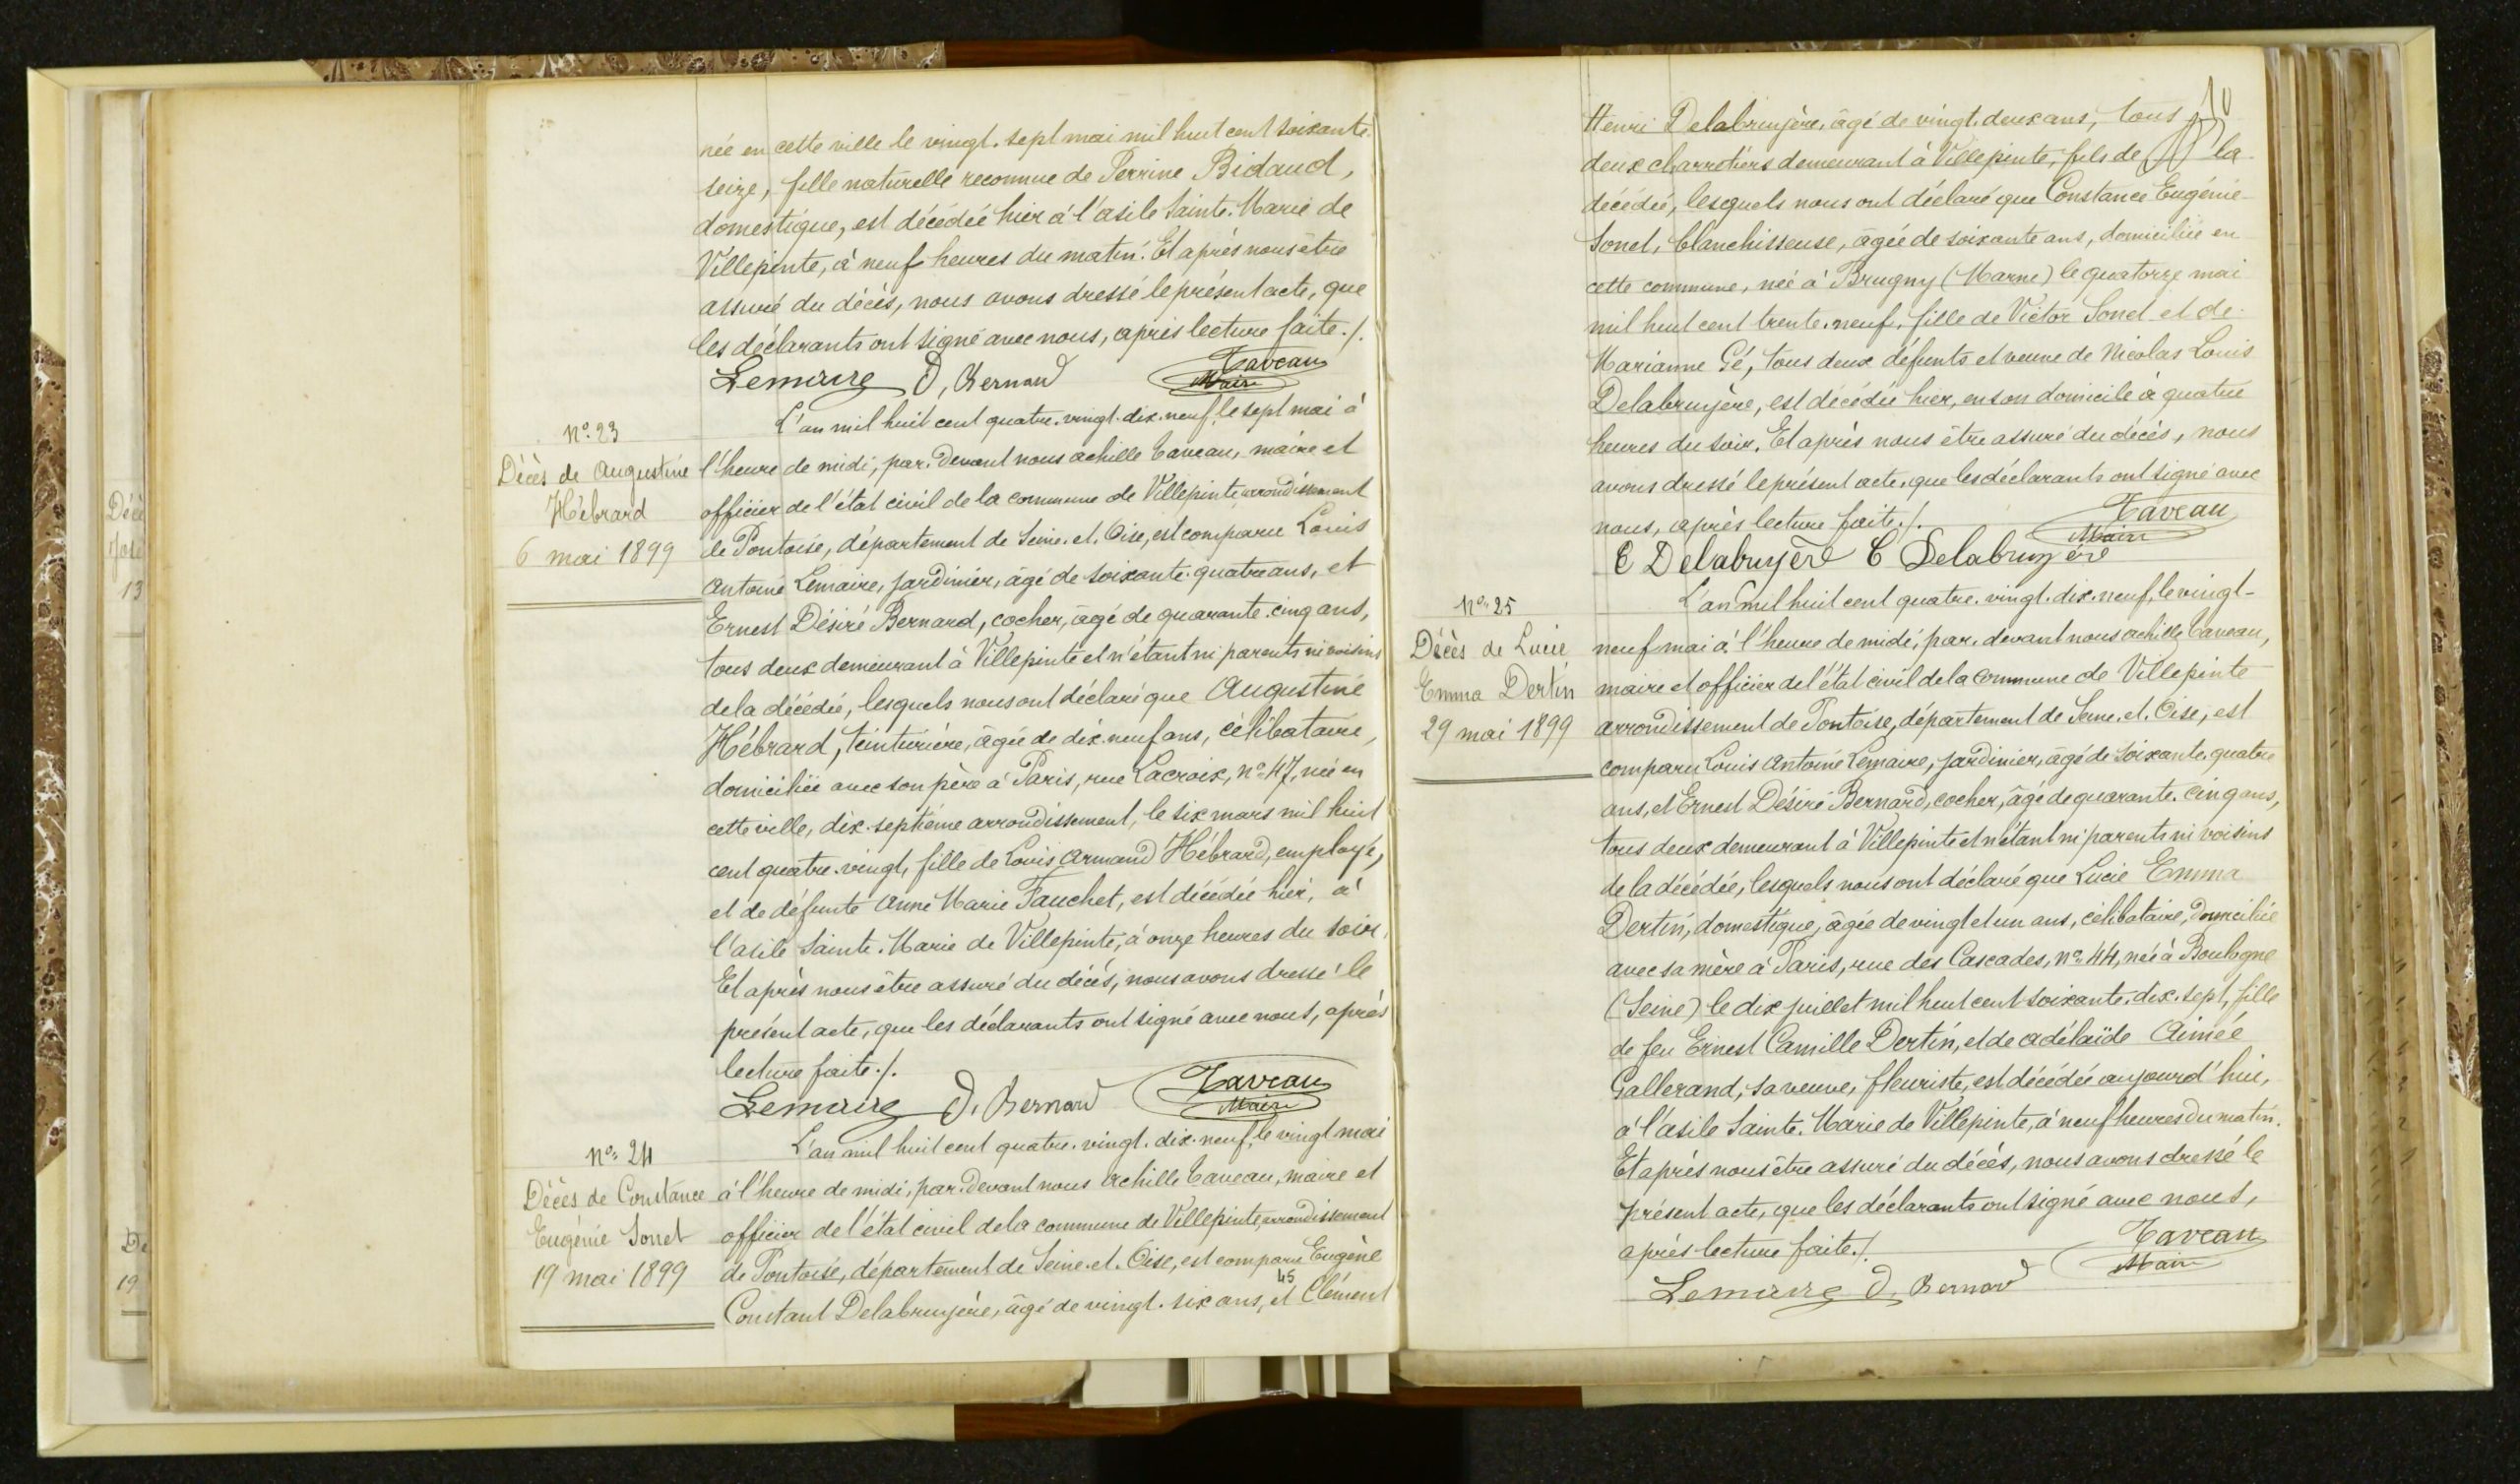 née en cette ville le vingt-sept mai mil huit cent soixante
seize, fille naturelle reconnue de Perrine Bidaud,
domestique, est décédée hier à l'asile Sainte-Marie de
Villepinte, à neuf heures du matin. Et après nous être
assuré du décès, nous avons dressé le présent acte, que
les déclarants ont signé avec nous, après lecture faite./.
Lemaire D, Bernard Taveau
Maire
Nº 23
Décès de Augustine
Hébrard
6 mai 1899
L'an mil huit cent quatre-vingt-dix-neuf, le sept mai à
l'heure de midi, par-devant nous Achille Taveau, maire et
officier de l'état civil de la commune de Villepinte arrondissement
de Pontoise, département de Seine-et-Oise, est comparu Louis
Antoine Lemaire, jardinier, âgé de soixante-quatre ans, et
Ernest Désiré Bernard, cocher, âgé de quarante-cinq ans,
tous deux demeurant à Villepinte et n'étant ni parents ni voisins
de la décédée, lesquels nous ont déclaré que Augustine
Hébrard, teinturière, âgée de dix-neuf ans, célibataire,
domiciliée avec son père à Paris, rue Lacroix, nº 47, née en
cette ville, dix-septième arrondissement, le six mars mil huit
cent quatre-vingt, fille de Louis Armand Hébrard, employé,
et de défunte Anne Marie Fauchet, est décédée hier, à
l'asile Sainte-Marie de Villepinte, à onze heures du soir.
Et après nous être assuré du décès, nous avons dressé le
présent acte, que les déclarants ont signé avec nous, après
lecture faite./.
Lemaire D. Bernard Taveau
Maire
Nº 24
Décès de Constance
Eugénie Sonet
19 mai 1899
L'an mil huit cent quatre-vingt-dix-neuf, le vingt mai
à l'heure de midi, par-devant nous Achille Taveau, maire et
officier de l'état civil de la commune de Villepinte, arrondissement
de Pontoise, département de Seine-et-Oise, est comparu Eugène
45
Constant Delabruyère, âgé de vingt-six ans, et Clément
10
Henri Delabruyère, âgé de vingt-deux ans, tous
deux charretiers demeurant à Villepinte, fils de la
décédée, lesquels nous ont déclaré que Constance Eugénie
Sonet, blanchisseuse, âgée de soixante ans, domiciliée en
cette commune, née à Brugny (Marne) le quatorze mai
mil huit cent trente-neuf, fille de Victor Sonet et de
Marianne Gé, tous deux défunts et veuve de Nicolas Louis
Delabruyère, est décédée hier, en son domicile à quatre
heures du soir. Et après nous être assuré du décès, nous
avons dressé le présent acte, que les déclarants ont signé avec
nous, après lecture faite./. Taveau
Maire
E Delabuyère C Delabruyère
Nº 25
Décès de Lucie
Emma Dertin
29 mai 1899
L'an mil huit cent quatre-vingt-dix-neuf, le vingt-
neuf mai à l'heure de midi, par-devant nous Achille Taveau,
maire et officier de l'état civil de la commune de Villepinte
arrondissement de Pontoise, département de Seine-et-Oise, est
comparu Louis Antoine Lemaire, jardinier, âgé de soixante-quatre
ans, et Ernest Désiré Bernard, cocher, âgé de quarante-cinq ans,
tous deux demeurant à Villepinte et n'étant ni parents ni voisins
de la décédée, lesquels nous ont déclaré que Lucie Emma
Dertin, domestique, âgée de vingt et un ans, célibataire, domiciliée
avec sa mère à Paris, rue des Cascades, nº 44, née à Boulogne
(Seine) le dix juillet mil huit cent soixante-dix-sept, fille
de feu Ernest Camille Dertin, et de Adélaïde Aimée
Gallerand, sa veuve, fleuriste, est décédée aujourd'hui,
à l'asile Sainte-Marie de Villepinte, à neuf heures du matin.
Et après nous être assuré du décès, nous avons dressé le
présent acte, que les déclarants ont signé avec nous,
après lecture faite./. Taveau
Maire
Lemaire D. Bernard